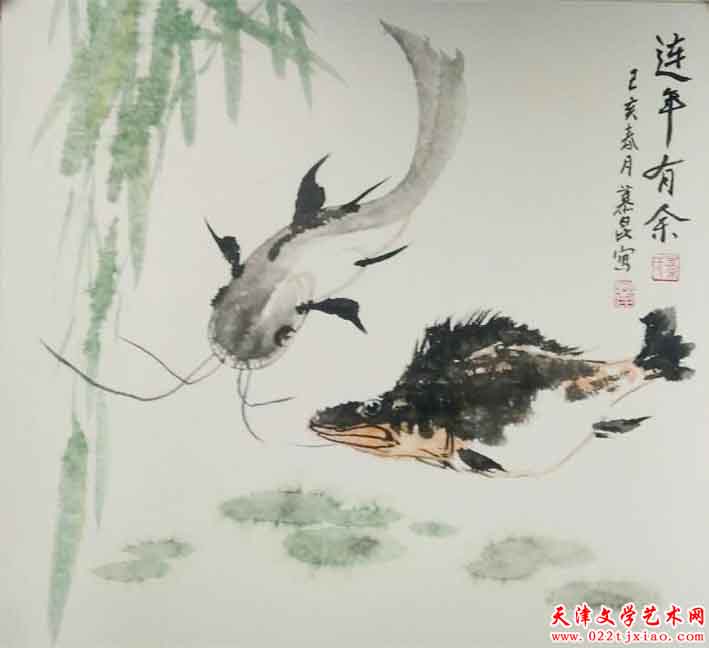 连年有余
己亥春月慕昆写
天津文学艺术网
www.022tjxiao.com